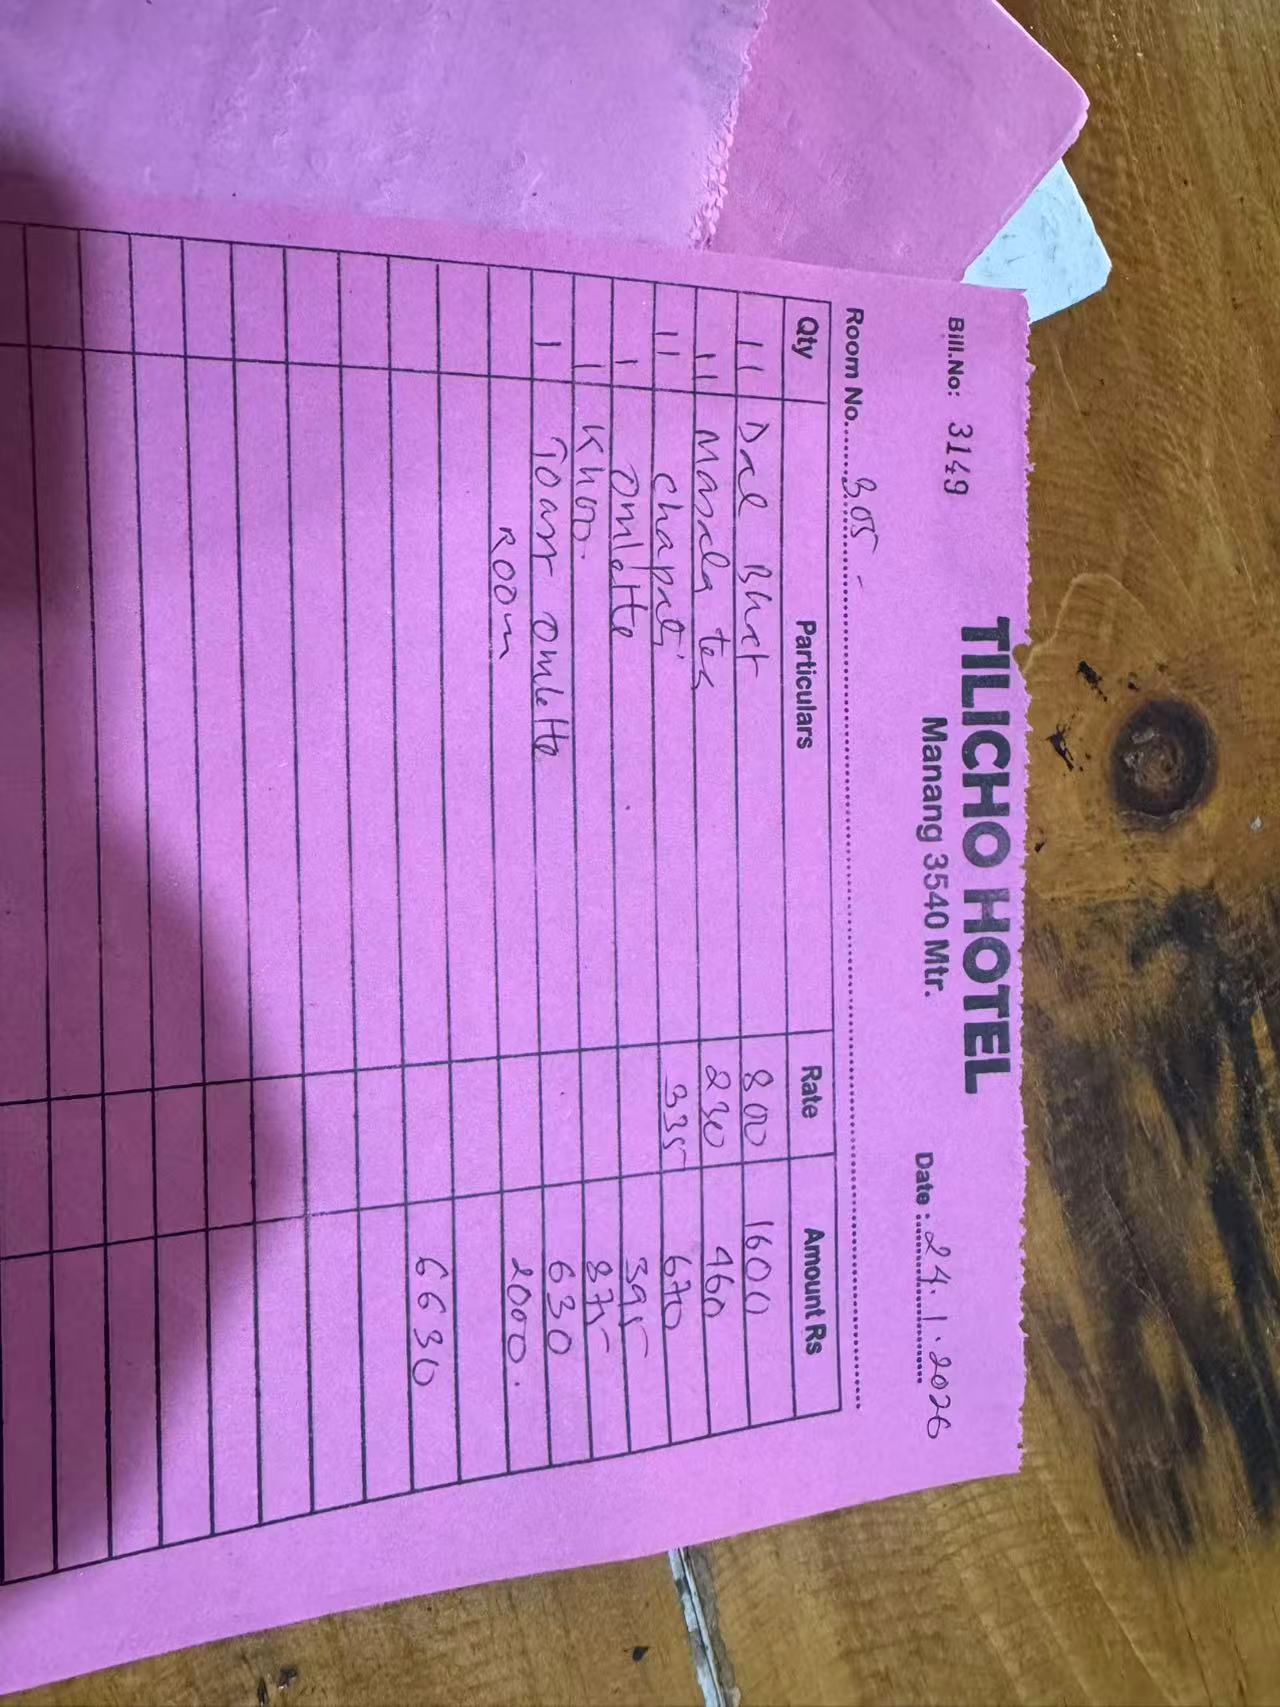 TILICHO HOTEL
Manang 3540 Mtr.
Bill.No: 3149
Date : 24.1.2026
Room No. 305
Qty Particulars Rate Amount Rs
11 Dal Bhat 800 1600
11 Masala tea 230 460
11 chapati 335 670
1 omlette 395
1 Khoo. 875
1 Toast omlette 630
Room 2000.
6630